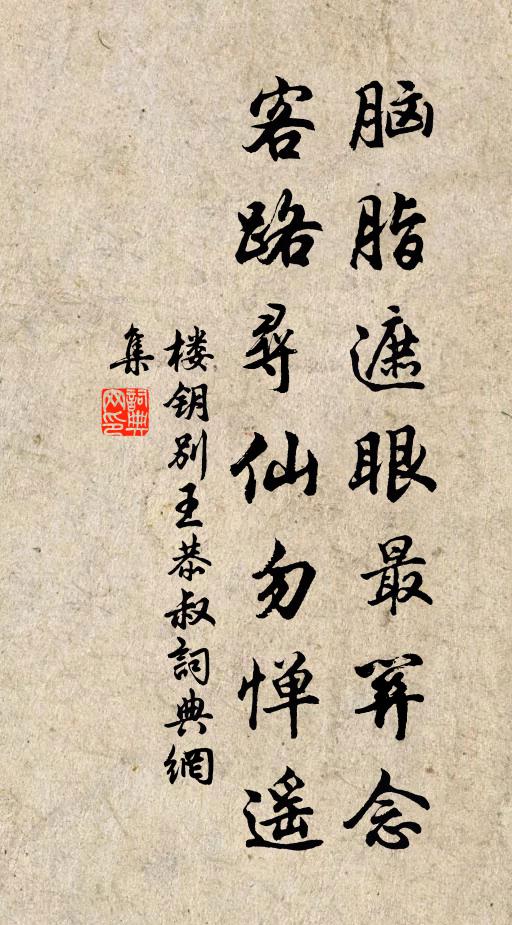 脑脂遮眼最关念
客路寻仙勿惮遥
楼钥别王恭叔詞典網
集
詞典
网印